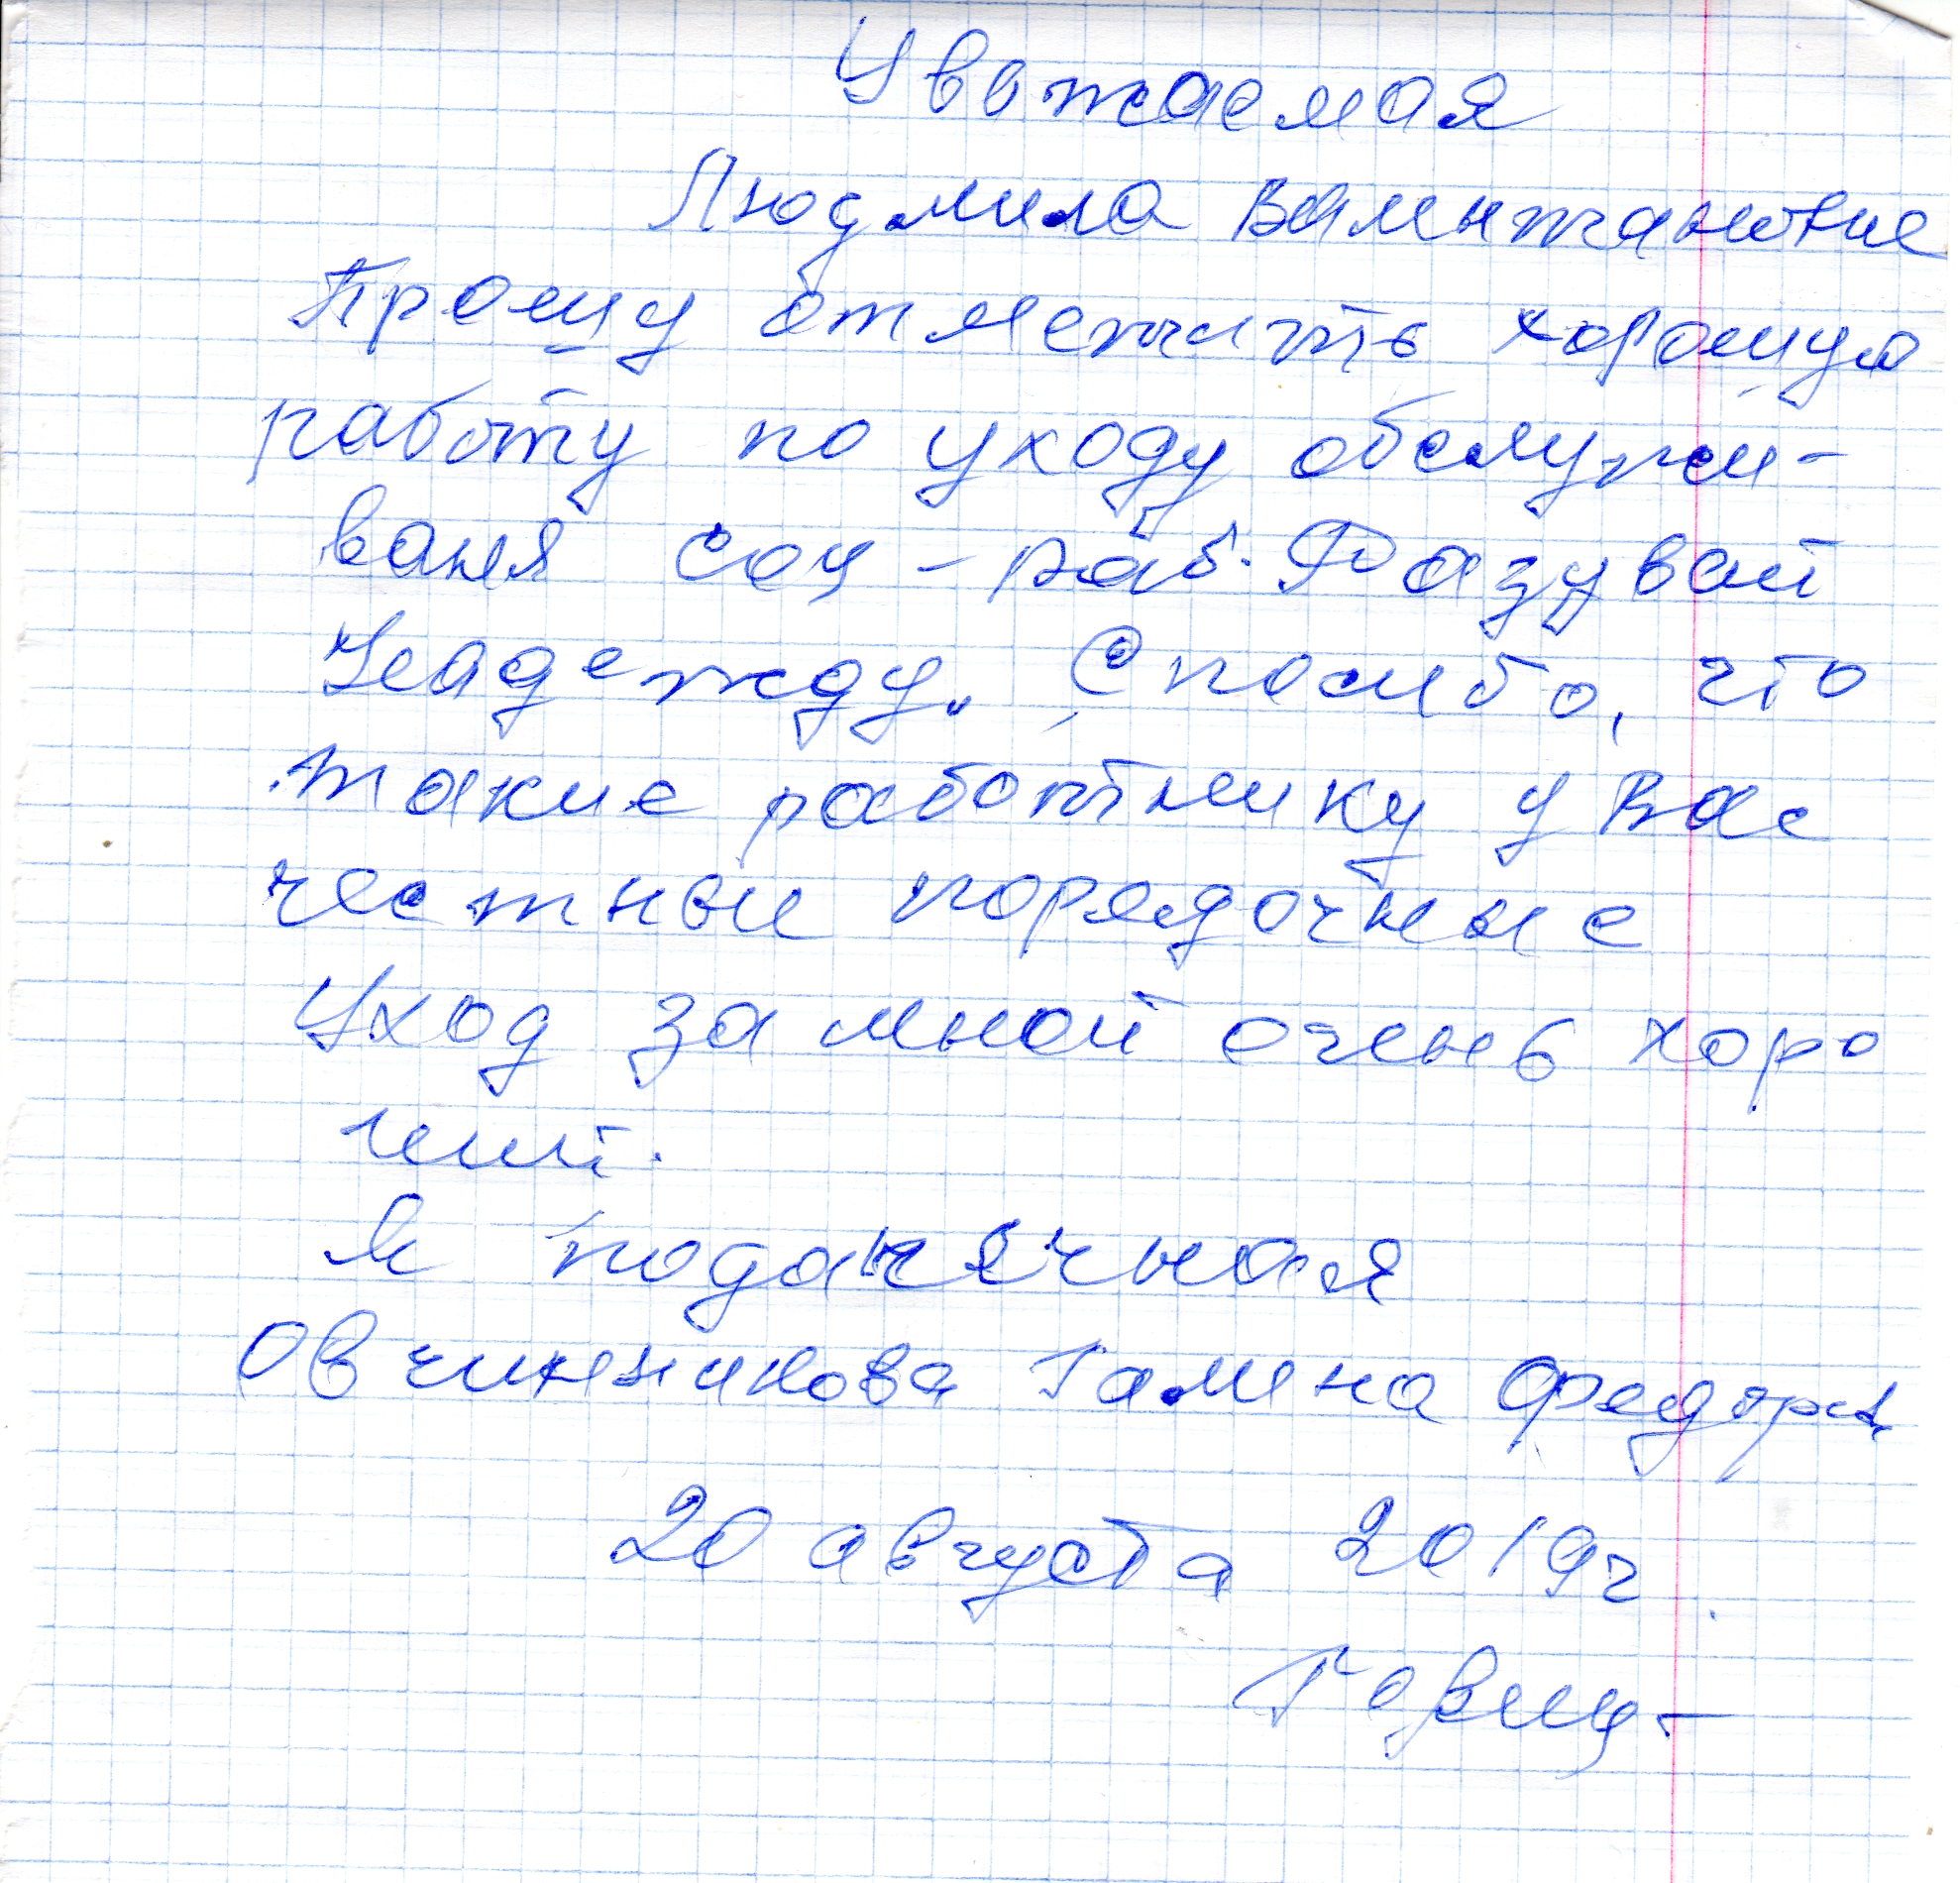 Уважаемая
Людмила
Прошу отметить хорошую
работу по уходу обслужи-
ваня соц-раб. Разувай
Надежду. Спасибо, что
такие работнику у Вас
честные порядочные
Уход за мной очень хоро
ший.
Я подопечная
Овчинникова Галина
20 августа 2019г